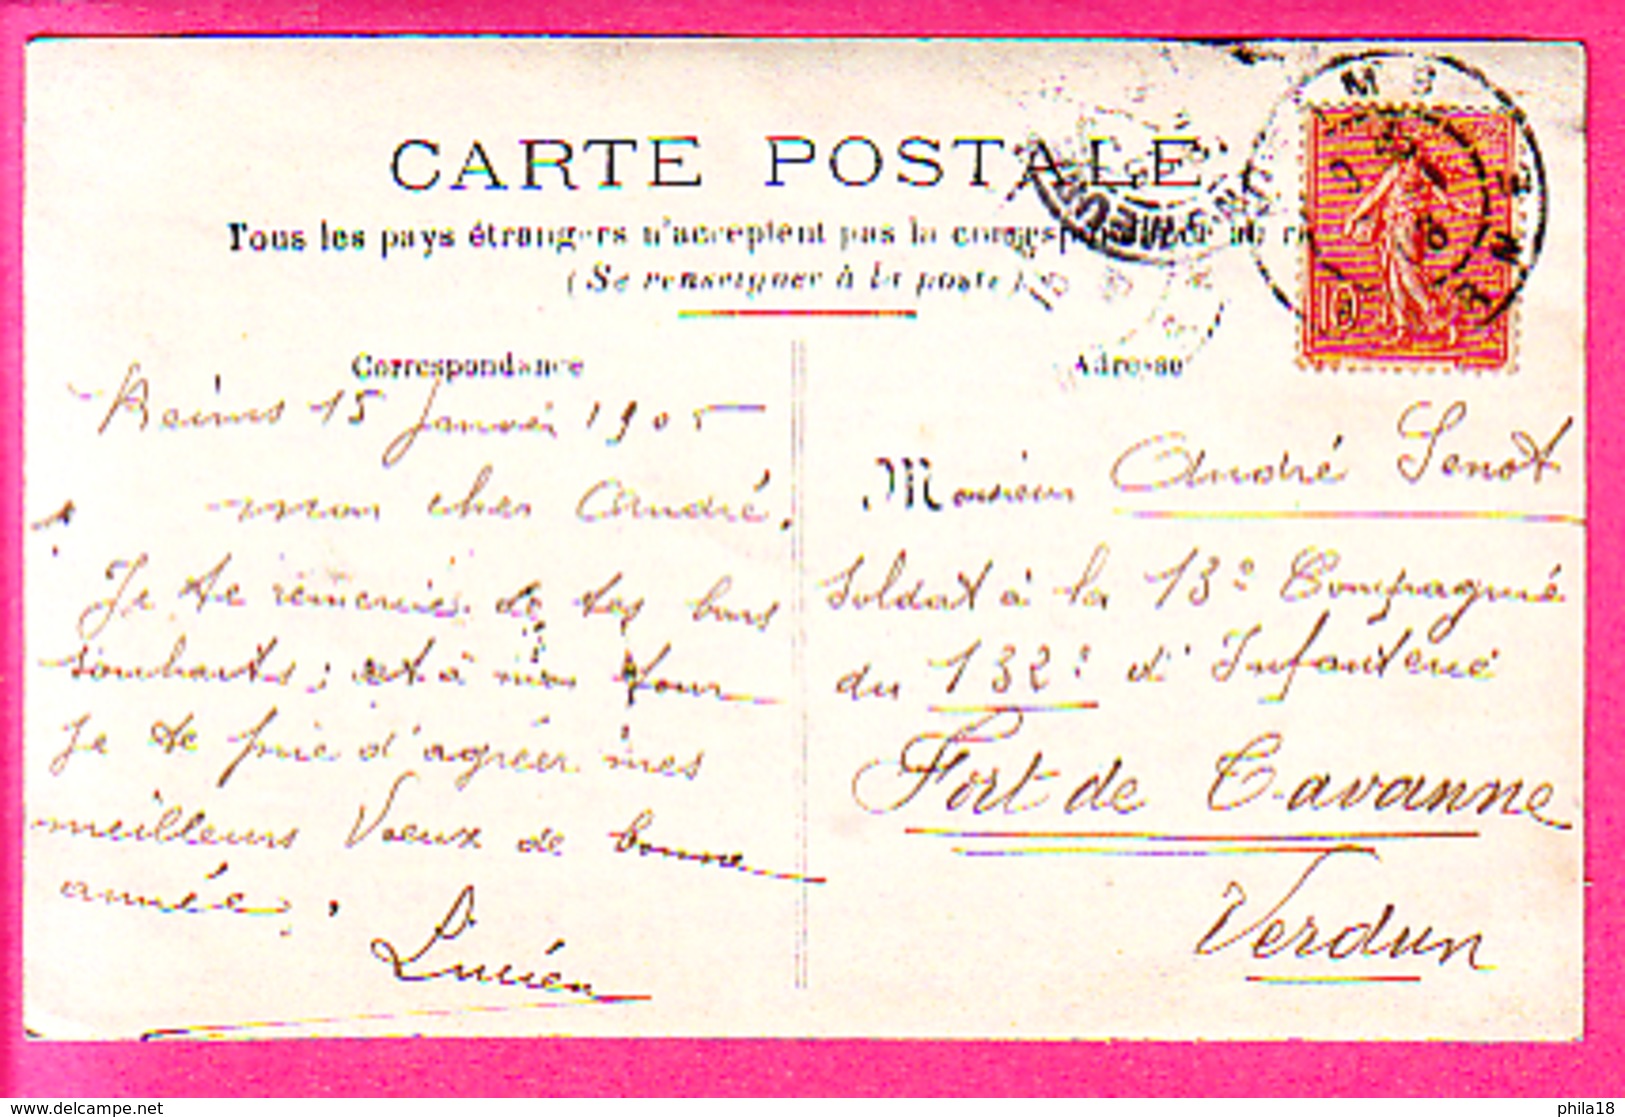 CARTE POSTALE
Tous les pays étrangers n'acceptent pas la correspondance au r
(Se renseigner à la poste)
Correspondance
Adresse
Reims 15 Janvier 1905
mon cher André.
Je te remercie de tes bons
souhaits; et à mon tour
Je te prie d'agréer mes
meilleurs Voeux de bonne
année.
Lucien
Monsieur André Senot
Soldat à la 13e Compagnie
du 132e d'Infanterie
Fort de Tavanne
Verdun
10
delcampe.net
phila18